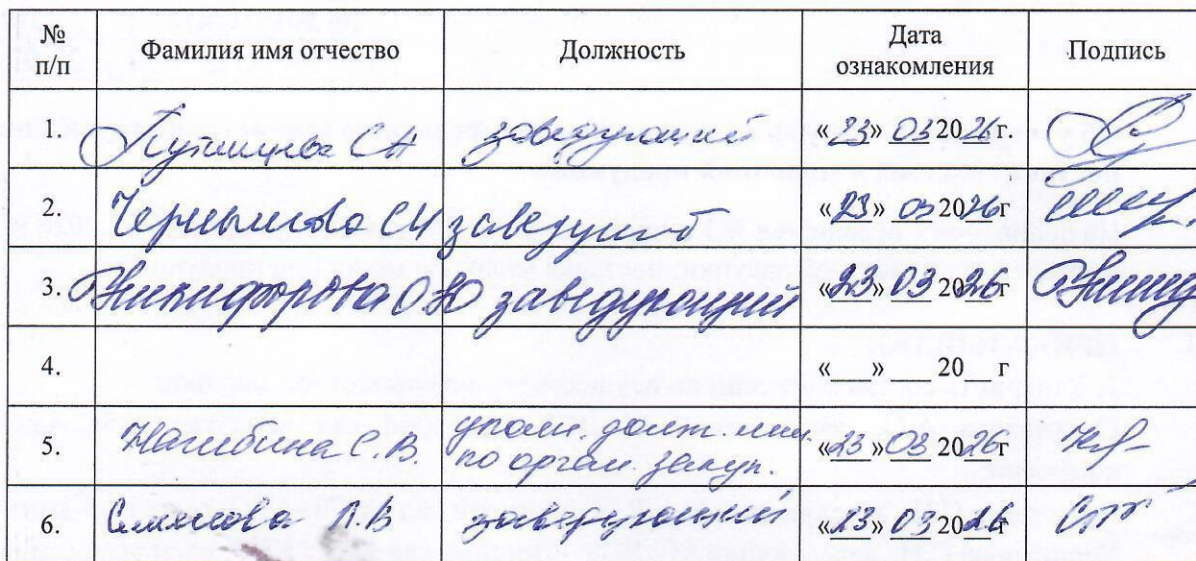 № п/п Фамилия имя отчество Должность Дата ознакомления Подпись
1. Путинцева СА заведующий «23» 03 2026г.
2. Чернышова СИ заведующ-й «23» 03 2026г
3. Никифорова О.Ю заведующий «23» 03 2026г
4. «___» ___ 20__ г
5. Нагибина С.В. уполн. долж. лицо по орган. закуп. «23» 03 2026г
6. Л.В заведующий «23» 03 2026